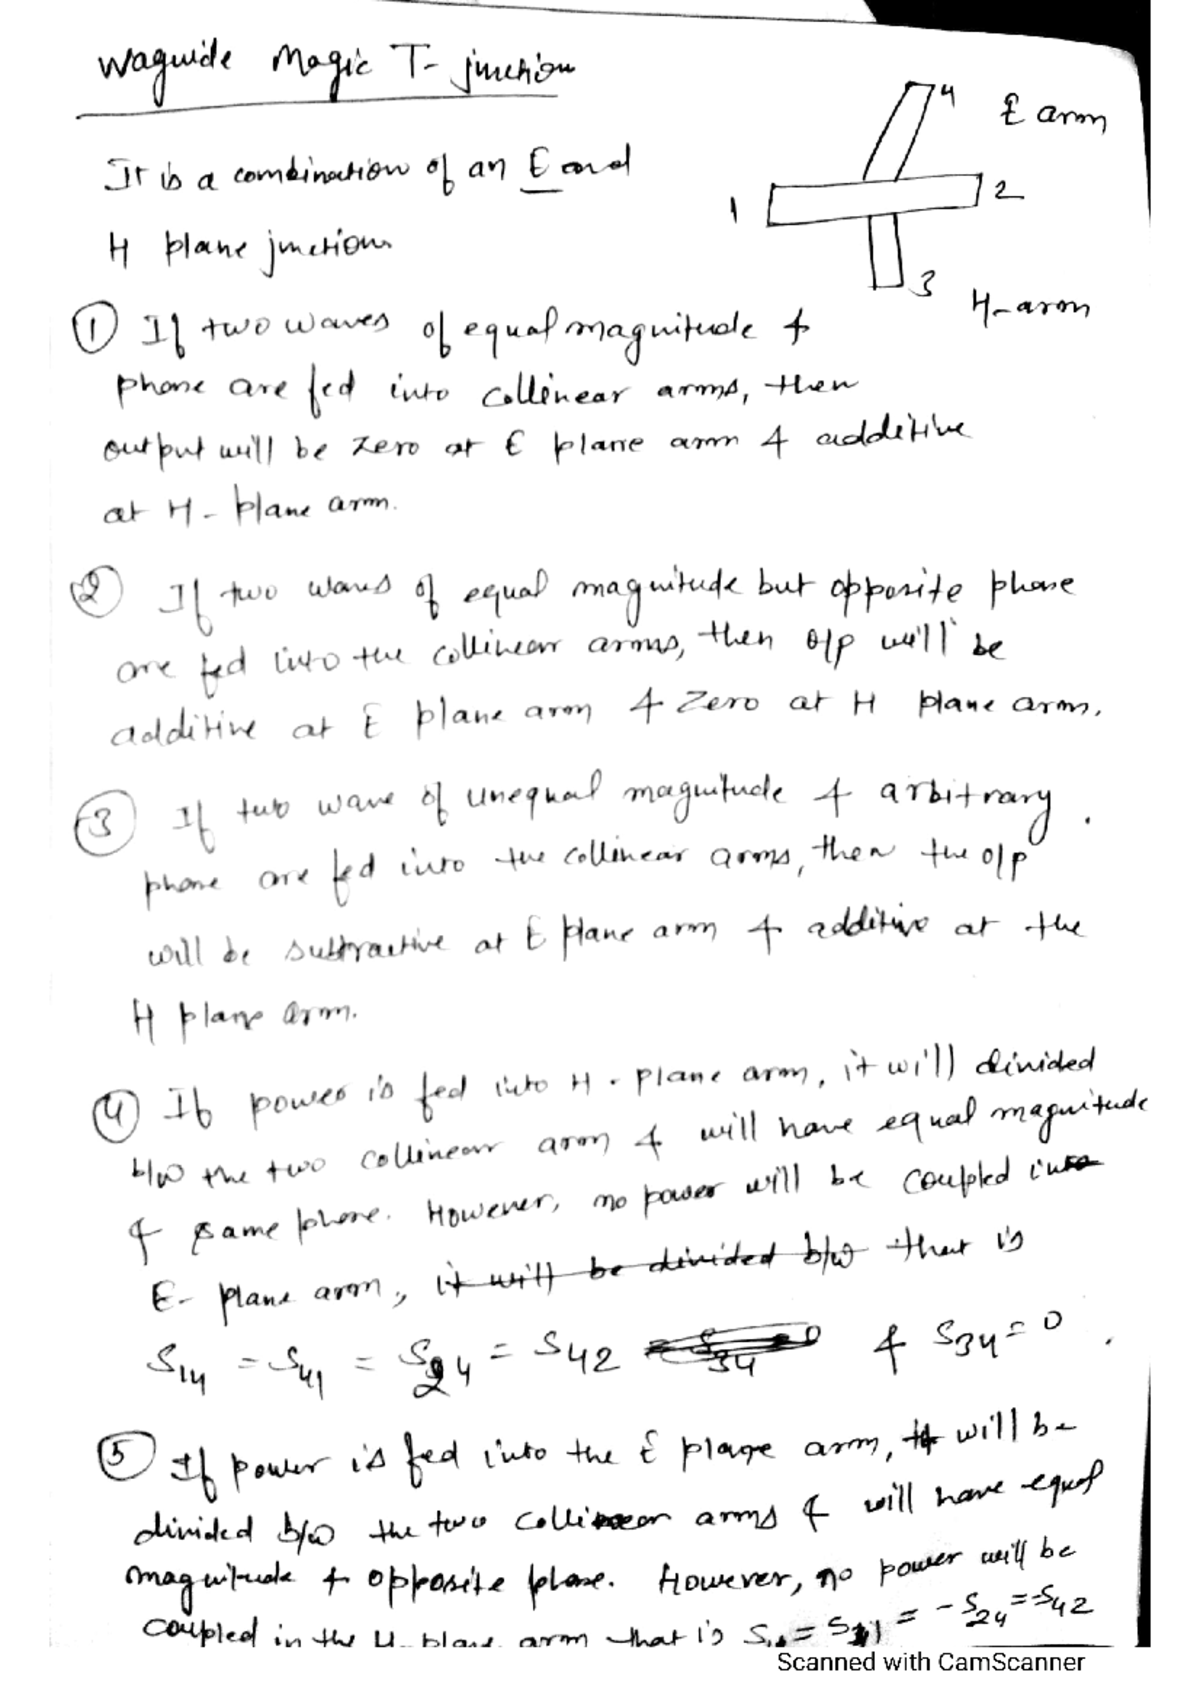 Waguide Magic T- junction
It is a combination of an E and
H plane junction
4 E arm
1
2
3
H-arm
① If two waves of equal magnitude &
phase are fed into collinear arms, then
output will be zero at E plane arm & additive
at H-plane arm.
② If two waves of equal magnitude but opposite phase
are fed into the collinear arms, then o/p will be
additive at E plane arm & zero at H plane arm.
③ If two wave of unequal magnitude & arbitrary
phase are fed into the collinear arms, then the o/p
will be subtractive at E plane arm & additive at the
H plane arm.
④ If power is fed into H-plane arm, it will divided
b/w the two collinear arm & will have equal magnitude
& same phase. However, no power will be coupled into
E-plane arm, it will be divided b/w that is
S14 = S41 = S24 = S42 = S34 = 0 & S34 = 0
⑤ If power is fed into the E plane arm, it will be
divided b/w the two collinear arms & will have equal
magnitude & opposite phase. However, no power will be
coupled in the H-plane arm that is = -S24 = -S42
Scanned with CamScanner